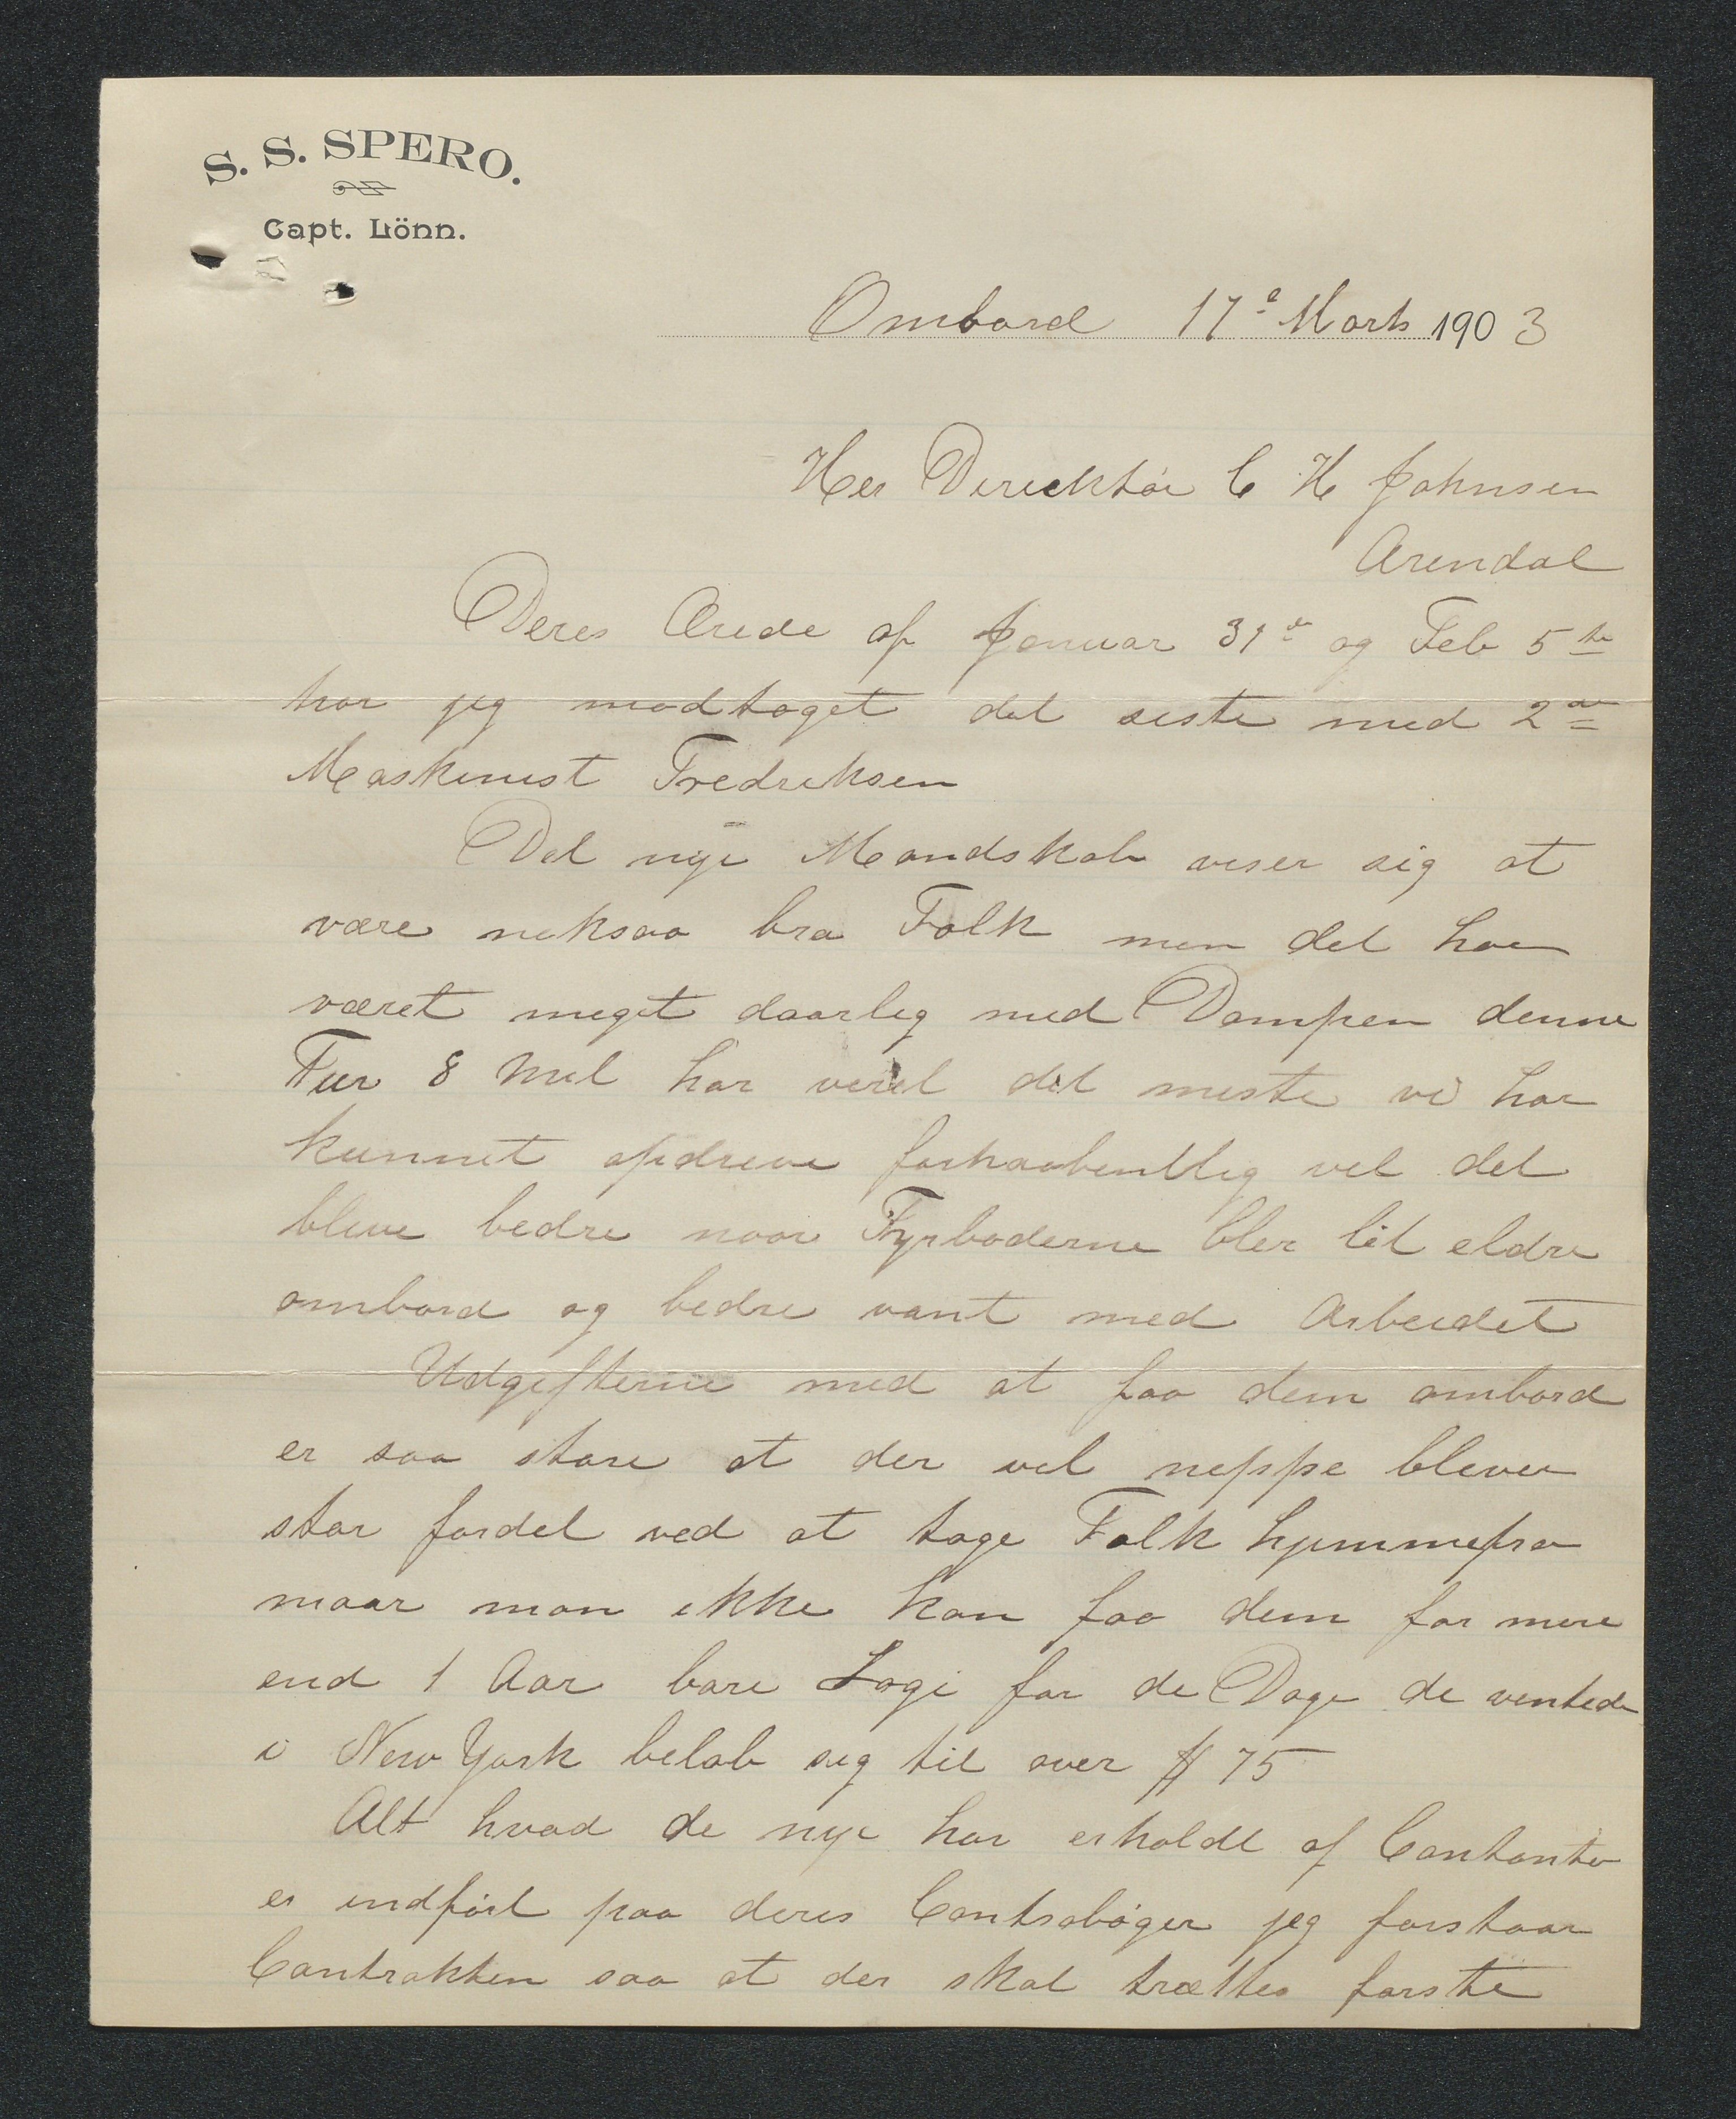 S. S. SPERO.
Capt. Lönn.
Ombord 17de Marts 1903
Her Direcktør C H Johnsen
Arendal
Deres Ærede af Januar 31te og Feb 5te
har jeg modtaget det siste med 2den
Maskinist Fredriksen
Det nye Mandskab viser sig at
være noksaa bra Folk men det har
været meget daarlig med Dampen denne
Tur 8 Mil har veret det meste vi har
kunnet opdrive forhaabentlig vil det
blive bedre naar Fyrbøderne bler lit eldre
ombord og bedre vant med Arbeidet
Udgifterne med at faa dem ombord
er saa store at der vel neppe bliver
stor fordel ved at tage Folk hjemmefra
naar man ikke kan faa dem for mere
end 1 Aar bare Logi for de Dage de ventede
i New York beløb sig til over $ 75
Alt hvad de nye har erholdt af Contanter
er indført paa deres Contrabøger jeg forstaar
Contrakten saa at der skal trættes første